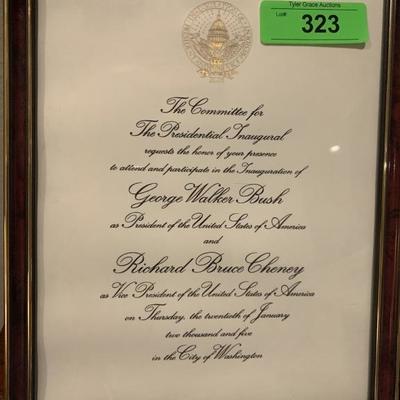 Tyler Grace Auctions
Lot# 323
The Committee for
The Presidential Inaugural
requests the honor of your presence
to attend and participate in the Inauguration of
George Walker Bush
as President of the United States of America
and
Richard Bruce Cheney
as Vice President of the United States of America
on Thursday, the twentieth of January
two thousand and five
in the City of Washington